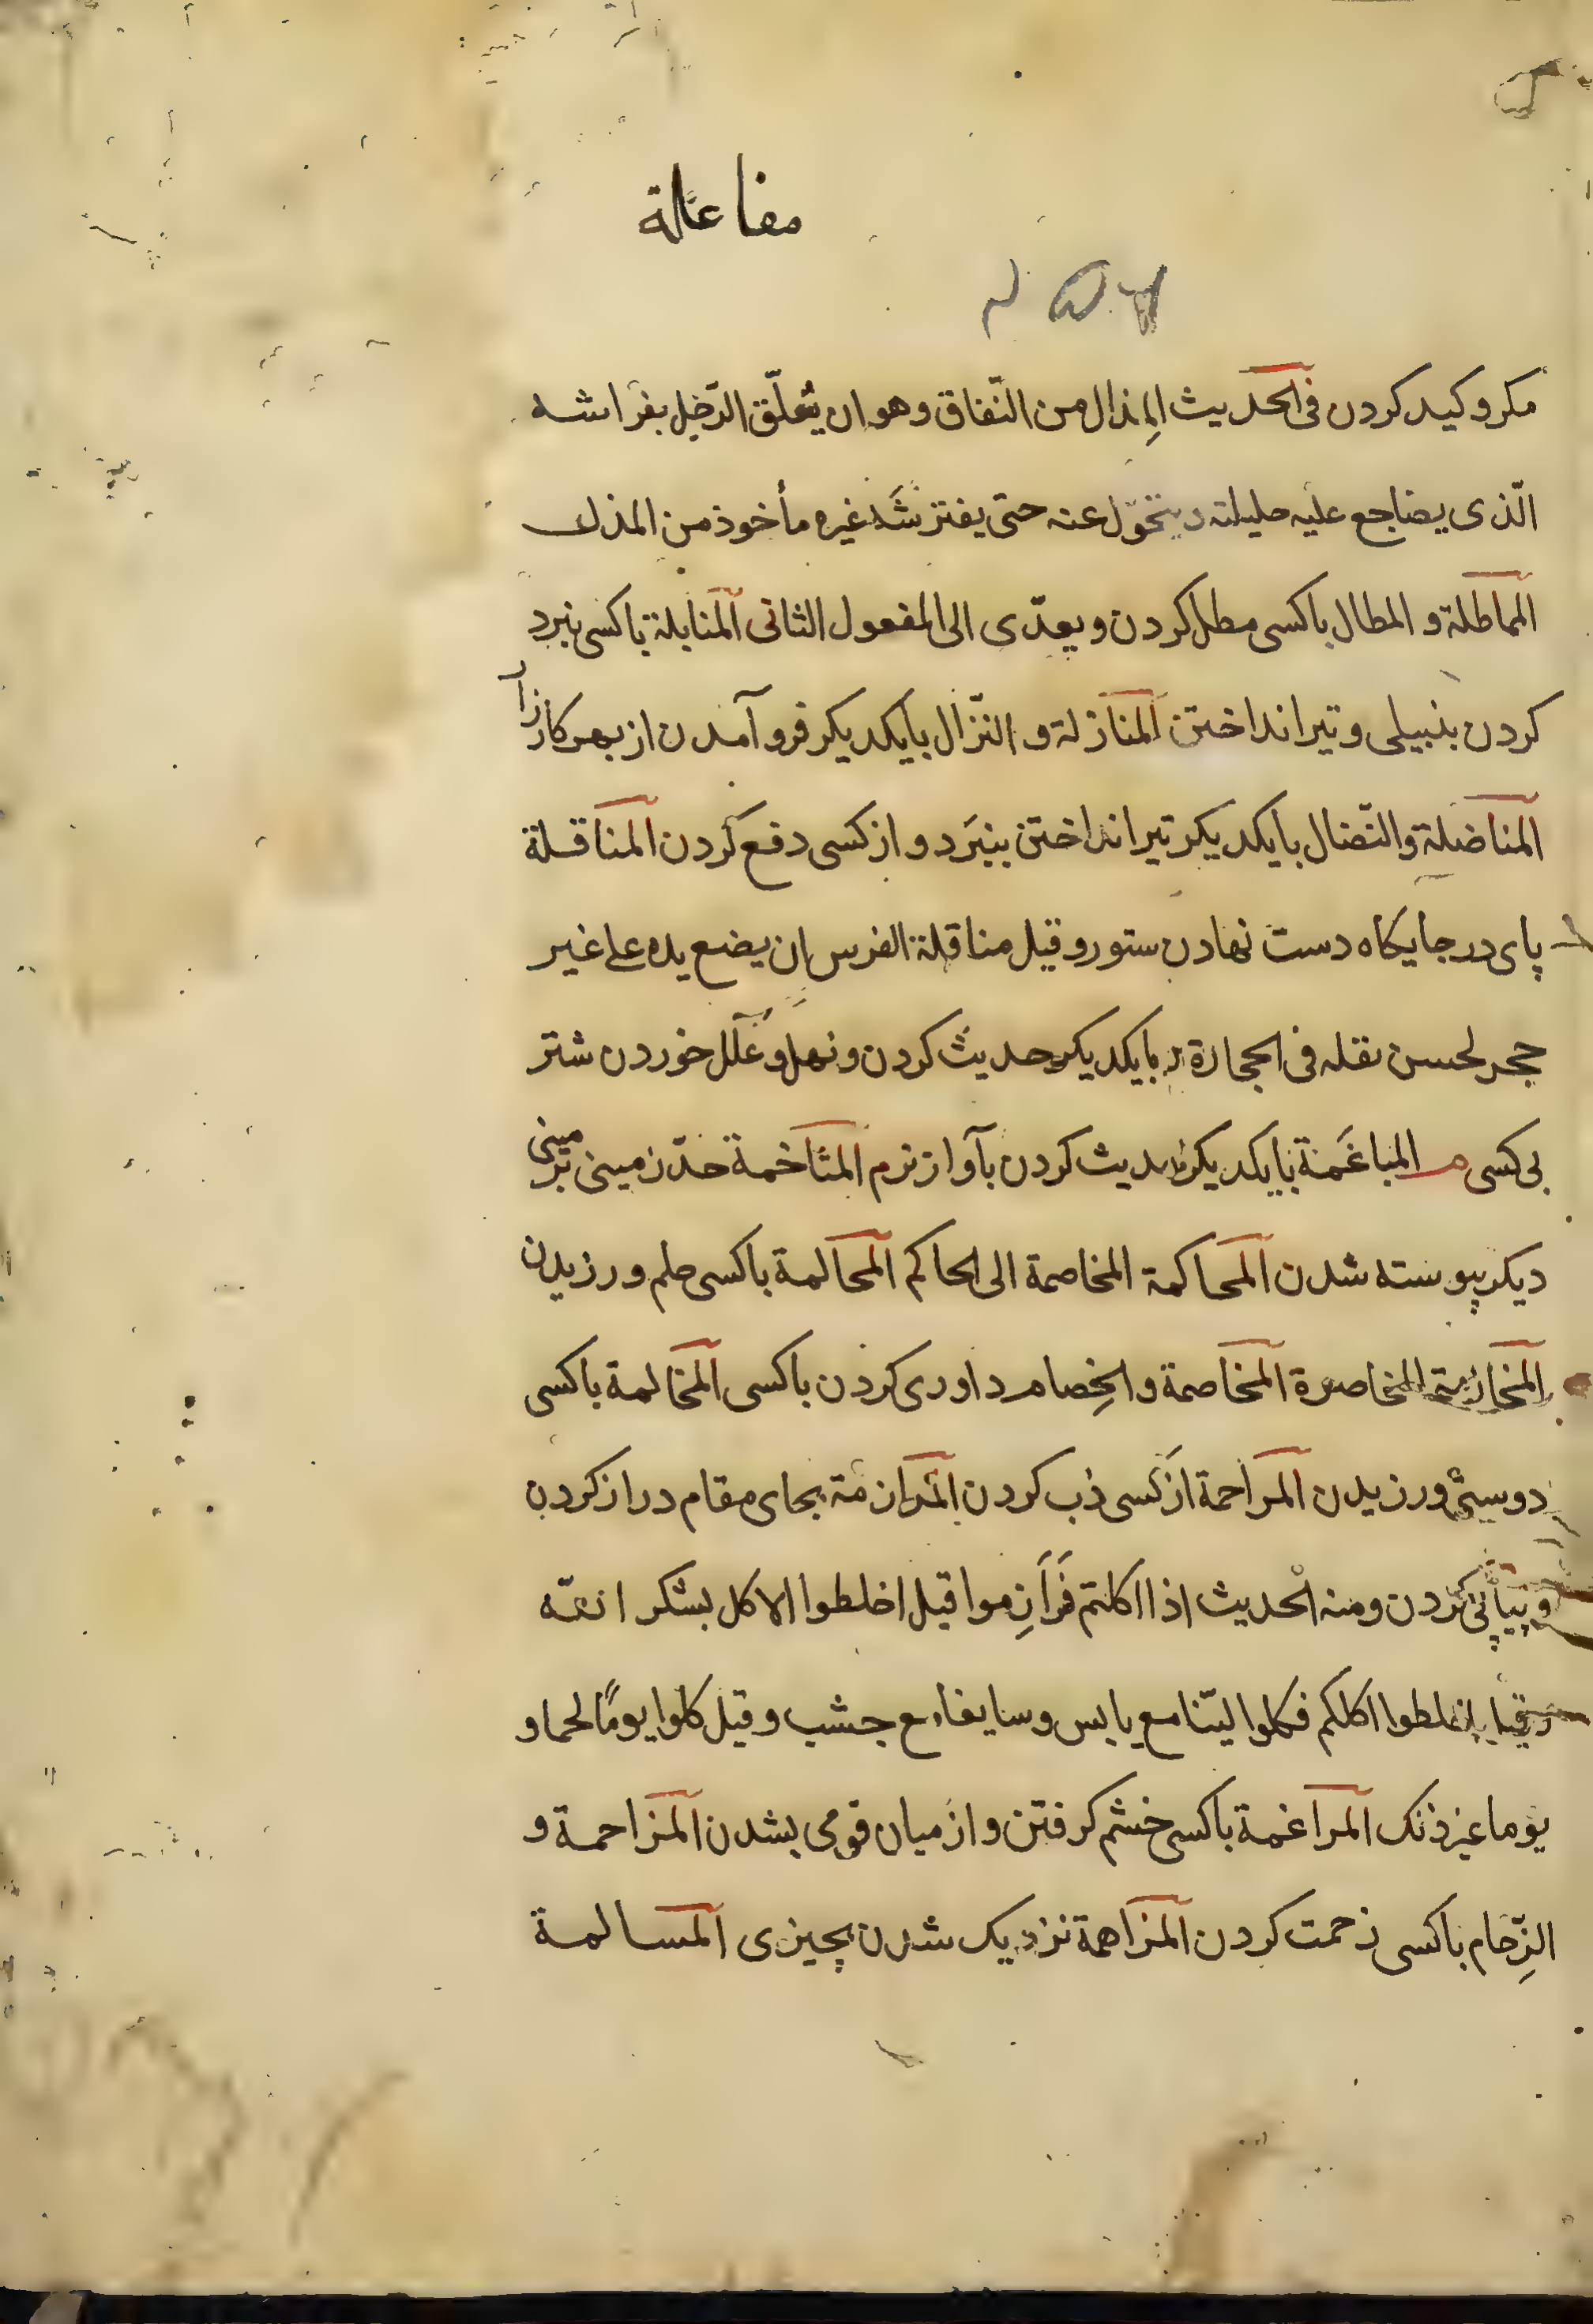 مفاعلة
مكر وكيد كردن فى الحديث المِذال من النّفاق وهو ان يتعلّق الرّجل بفراشه
الّذى يضاجع عليه حليلته ويتحوّل عنه حتى يفترشَه غيره مأخوذ من المذل
المماطلة و المطال باكسى مطل كردن و يعدّى الى المفعول الثانى المنابلة باكسى نبرد
كردن بنبيلى و تير انداختن المنازلة و النّزال بايكديكر فرو آمدن از بهر كارزا
المناضلة والنّضال بايكديكر تير انداختن بنبَرد و از كسى دفع كردن المناقلة
پاى در جايكاه دست نهادن ستور و قيل مناقلة الفرس ان يضع يده على غير
حجر لحسن نقله فى الحجارة و بايكديكر حديث كردن و نهل و علل خوردن شتر
بى كسى م المباغَمة بايكديكر حديث كردن بآواز نرم المتاخمة حدّ زمينى بر مينى
ديكر پيوسته شدن المحاكمة المخاصمة الى الحاكم المحالمة باكسى حلم ورزيدن
المخاصرة المخاصمة والخِصام داورى كردن باكسى المخالمة باكسى
دوستى ورزيدن المراحمة از كسى ذب كردن المرازمة بجاى مقام دراز كردن
كردن ومنه الحديث اذا اكلتم فَرَازِموا قيل اخلطوا الاكل بشكر
وقيل اخلطوا اكلكم فكلوا ليّنا مع يابس وسايغا مع جشب وقيل كلوا يومًا لحما و
يوما غير ذلك المراغمة باكسى خشم كرفتن و از ميان قومى بشدن المزاحمة و
الزِّحام باكسى زحمت كردن المزاهمة نزديك شدن بچيزى المسالمة